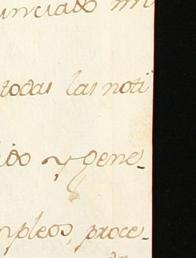 unciado mi
todas las noti
ido y gene_
mpleos, proce_